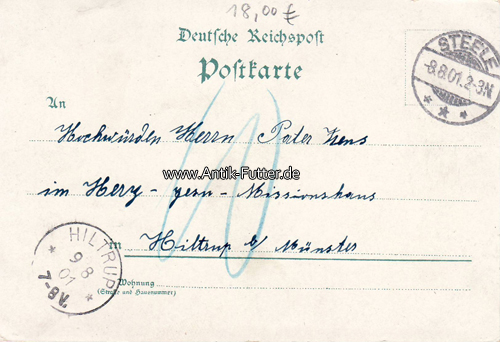 18,00 €
Deutsche Reichspost
Postkarte
STEELE
8.8.01.2-3N
An
Hochwürden Herrn Pater
www.Antik-Futter.de
im Herz-Jesu-Missionshaus
in Hiltrup b/ Münster
HILTRUP
9 8
01
7-8V.
Wohnung
(Straße und Hausnummer)
10